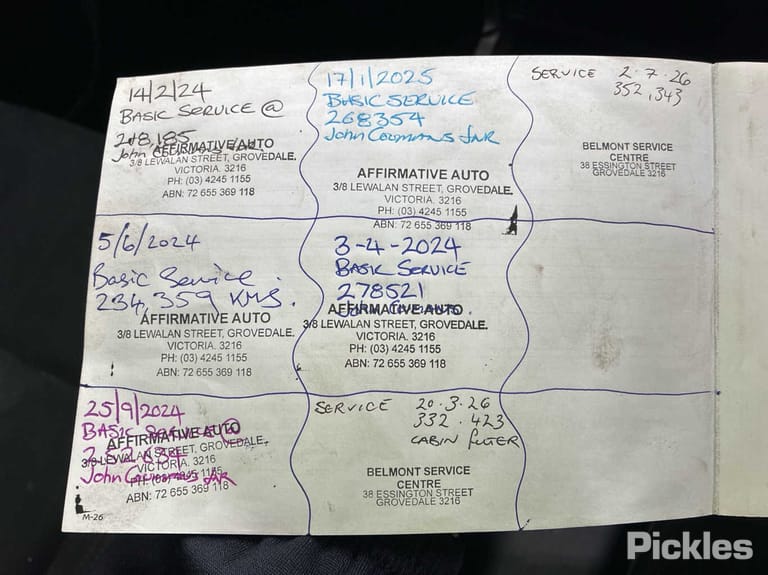 14/2/24
BASIC SERVICE @
218,185
AFFIRMATIVE AUTO
3/8 LEWALAN STREET, GROVEDALE.
VICTORIA. 3216
PH: (03) 4245 1155
ABN: 72 655 369 118
5/6/2024
Basic Service.
234,359 KMS.
AFFIRMATIVE AUTO
3/8 LEWALAN STREET, GROVEDALE.
VICTORIA. 3216
PH: (03) 4245 1155
ABN: 72 655 369 118
25/9/2024
BASIC SERVICE @
AFFIRMATIVE AUTO
3/8 LEWALAN STREET, GROVEDALE.
VICTORIA. 3216
PH: (03) 4245 1155
ABN: 72 655 369 118
M-26
17/1/2025
BASIC SERVICE
268354
AFFIRMATIVE AUTO
3/8 LEWALAN STREET, GROVEDALE.
VICTORIA. 3216
PH: (03) 4245 1155
ABN: 72 655 369 118
3-4-2024
BASIC SERVICE
278521
AFFIRMATIVE AUTO
3/8 LEWALAN STREET, GROVEDALE.
VICTORIA. 3216
PH: (03) 4245 1155
ABN: 72 655 369 118
SERVICE 20.3.26
332.423
CABIN FILTER
BELMONT SERVICE
CENTRE
38 ESSINGTON STREET
GROVEDALE 3216
SERVICE 2.7.26
352,343
BELMONT SERVICE
CENTRE
38 ESSINGTON STREET
GROVEDALE 3216
Pickles